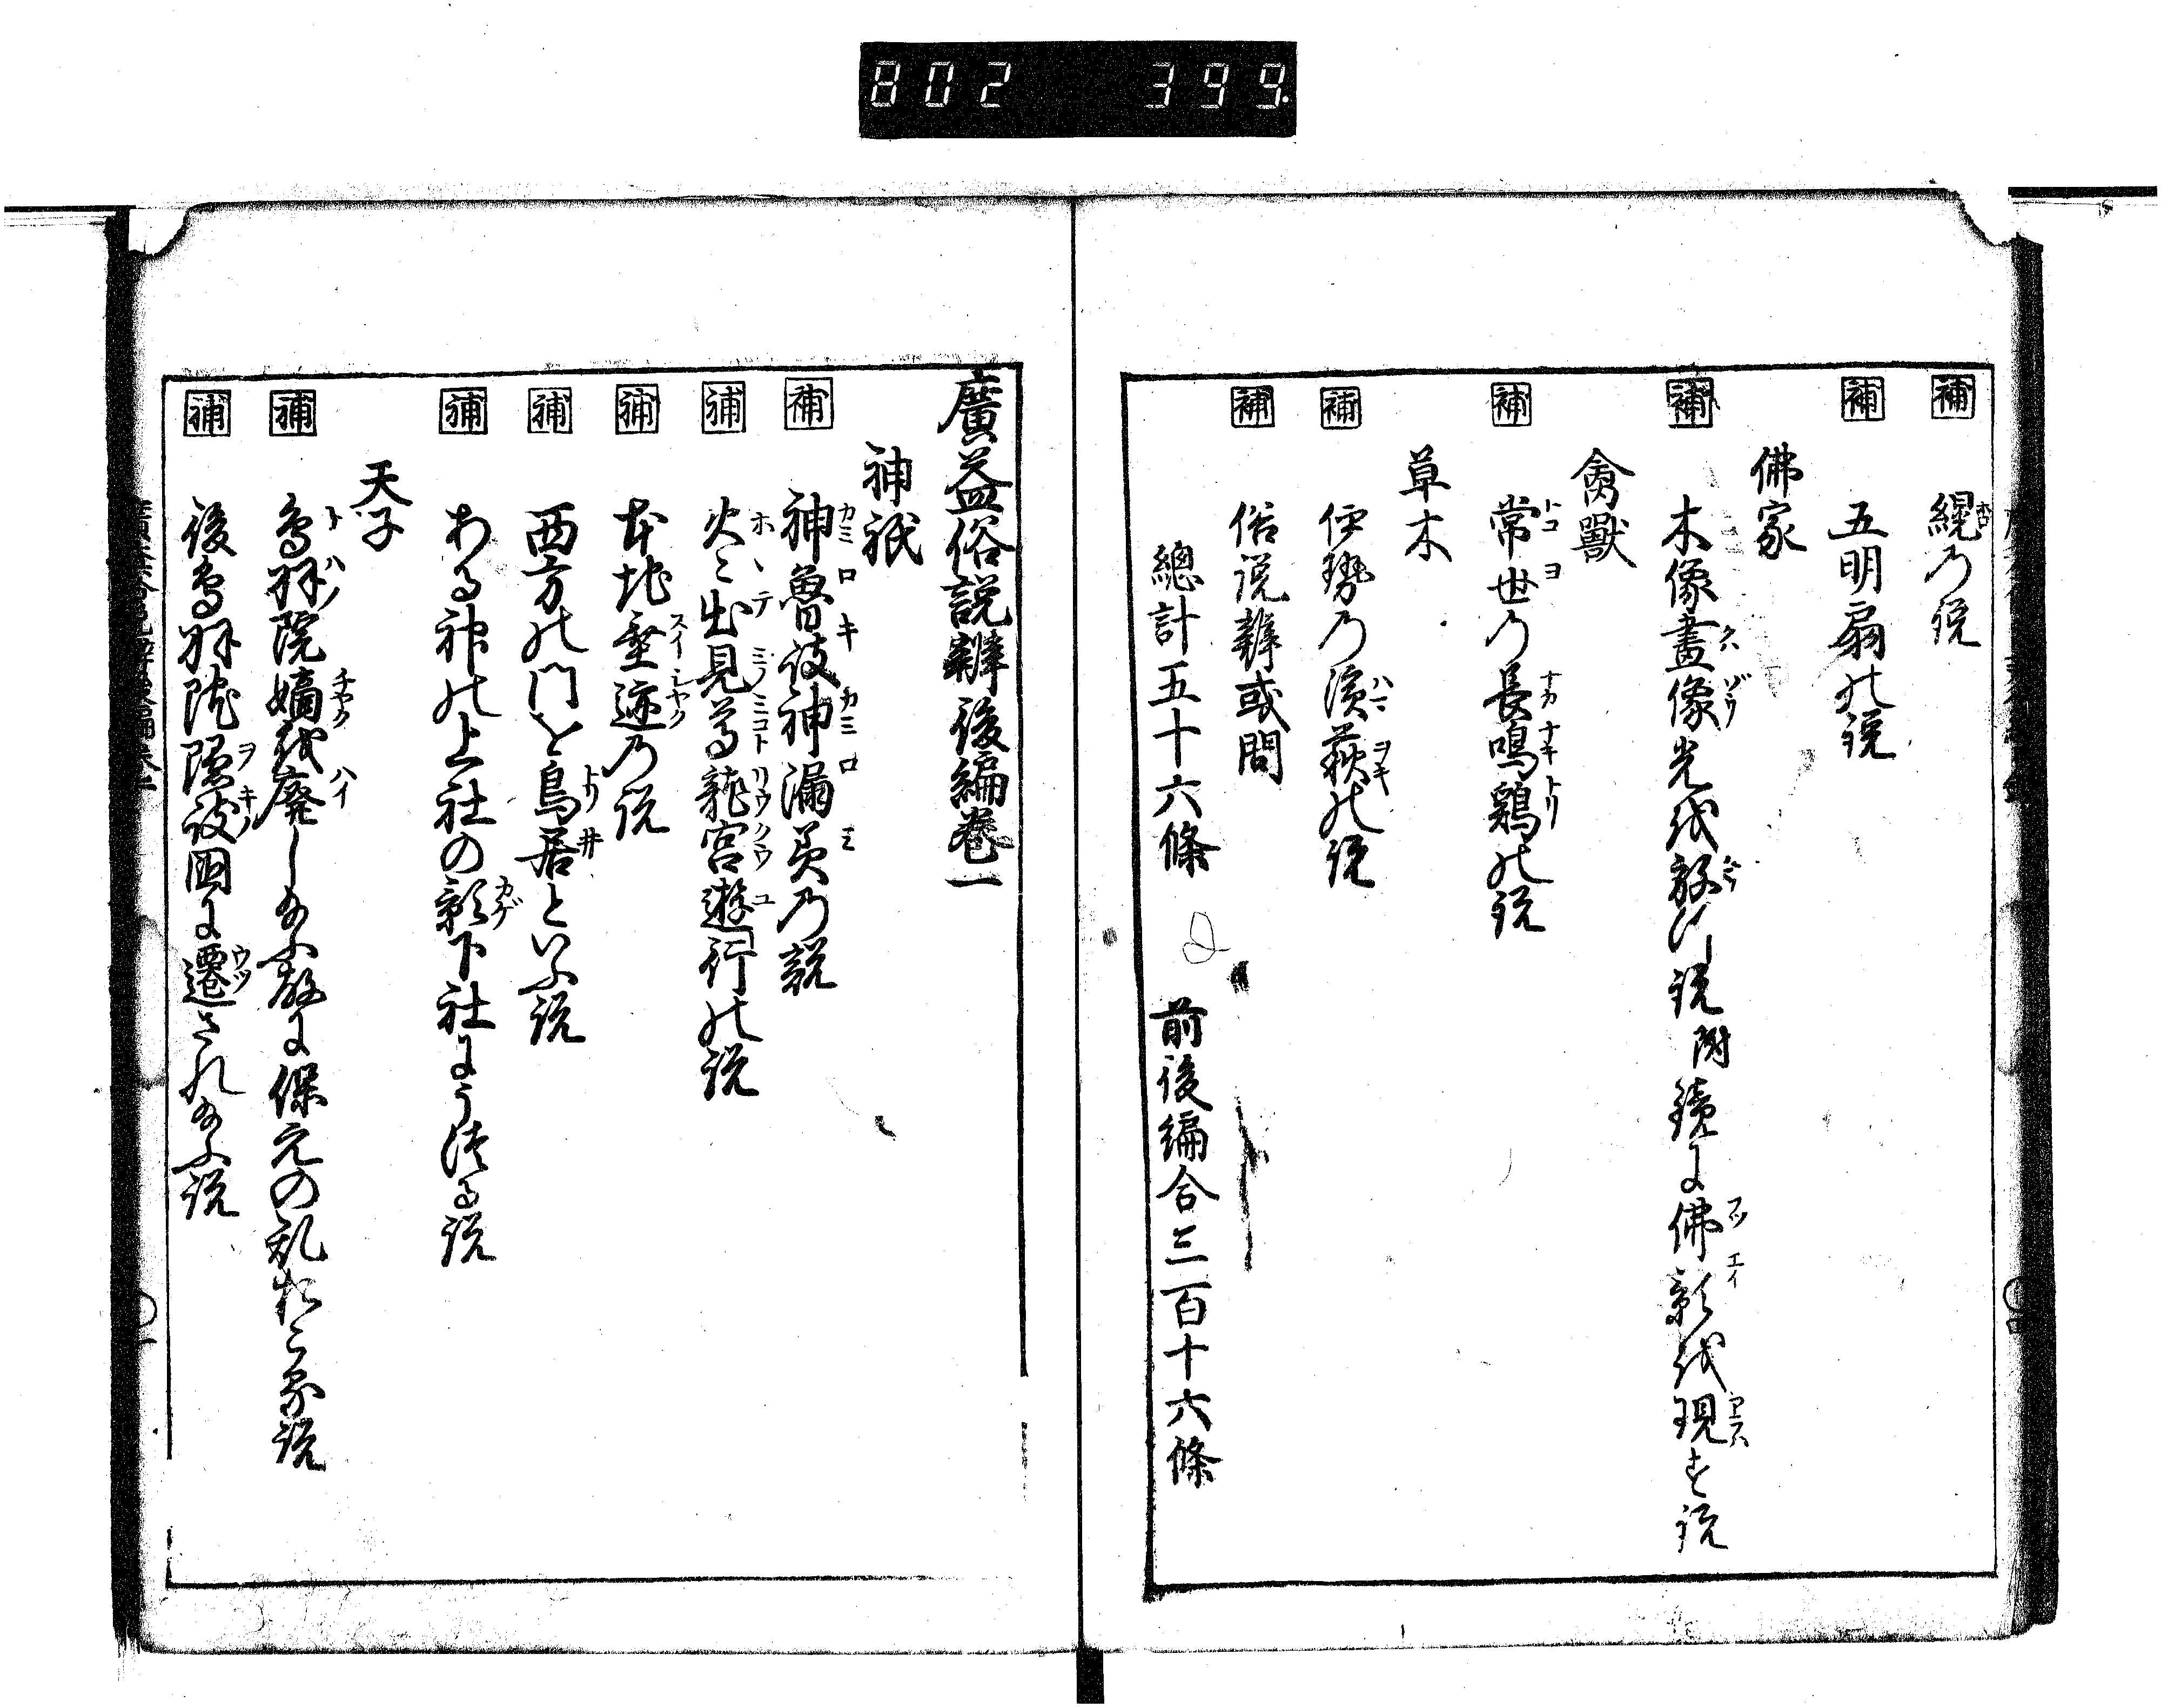 802 399.
補 繩の説
補 五明扇の説
佛家
補 木像畫像光を放し説 附 鏡に佛影を現す説
禽獸
補 常世の長鳴鷄の説
草木
補 伊勢の濱荻の説
補 俗説辨或問
總計五十六條 前後編合三百十六條
廣益俗説辨後編卷一
神祇
補 神魯岐神漏美の説
補 火々出見尊龍宮遊行の説
補 本地垂迹の説
補 西方の門を鳥居といふ説
補 ある神の上社の影下社にうつる説
天子
補 鳥羽院嫡を廢し給ふ故に保元の乱おこる説
補 後鳥羽院隱岐國に遷され給ふ説